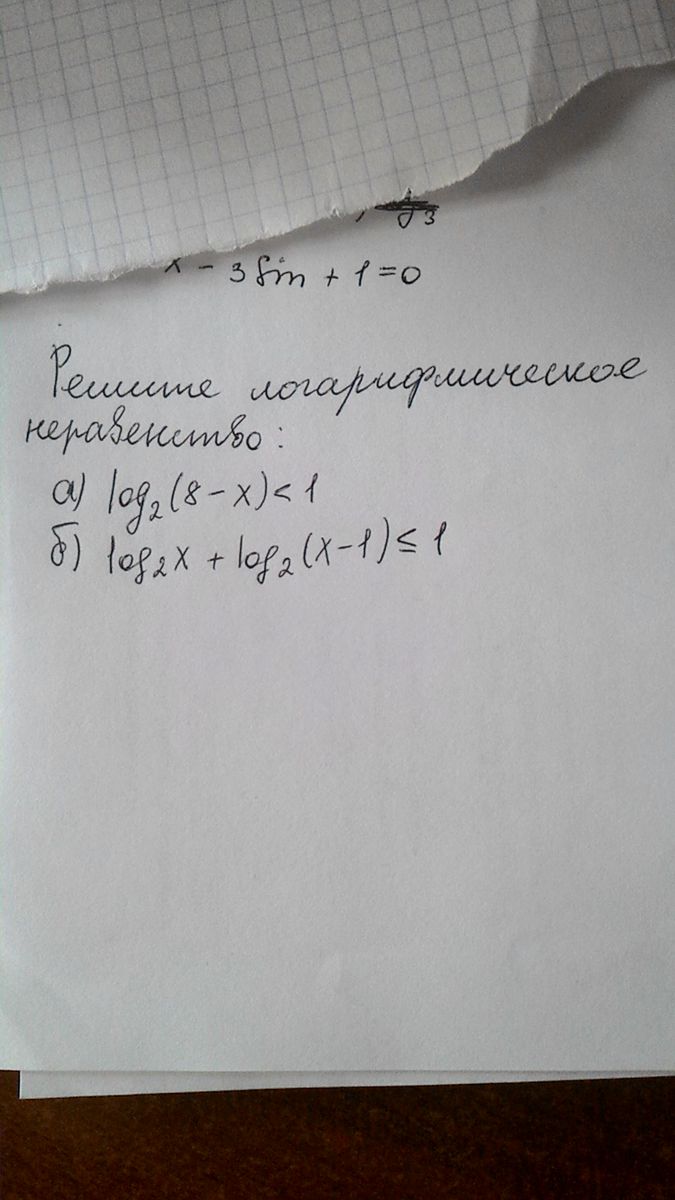 x - 3 sin + 1 = 0
Решите логарифмическое
неравенство:
а) log₂(8 - x) < 1
б) log₂x + log₂(x - 1) ≤ 1